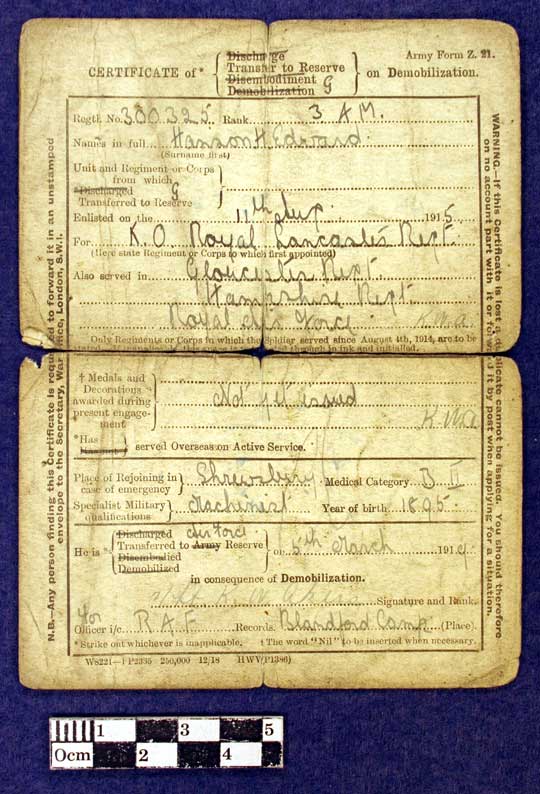 Army Form Z. 21.
CERTIFICATE of* Discharge
Transfer to Reserve
Disembodiment
Demobilization G
on Demobilization.
Regtl. No. 300325 Rank 3 A.M.
Names in full Hanson H Edward
(Surname first)
Unit and Regiment or Corps
from which
*Discharged G
Transferred to Reserve
Enlisted on the 11th Sep 1915
For K.O. Royal Lancaster Regt.
(Here state Regiment or Corps to which first appointed)
Also served in Gloucester Regt.
Hampshire Regt.
Royal Air Force
Only Regiments or Corps in which the Soldier served since August 4th, 1914, are to be
through in ink and initialled.
† Medals and
Decorations
awarded during
present engage-
ment
Not yet issued
*Has
served Overseas on Active Service.
Place of Rejoining in
case of emergency
Shrewsbury Medical Category B II
Specialist Military
qualifications
Machinist Year of birth 1895
He is*
Discharged
Transferred to Army Reserve
Air Force
Disembodied
Demobilized
on 5th March 1919
in consequence of Demobilization.
Signature and Rank.
for
Officer i/c R A F Records. Blandford Camp (Place).
* Strike out whichever is inapplicable. † The word "Nil" to be inserted when necessary.
W8221—P2335 250,000 12/18 HWV(P1386)
N.B.—Any person finding this Certificate is requested to forward it in an unstamped
envelope to the Secretary, War Office, London, S.W.1.
WARNING.—If this Certificate is lost a duplicate cannot be issued. You should therefore
on no account part with it or forward it by post when applying for a situation.
1 3 5
0cm 2 4